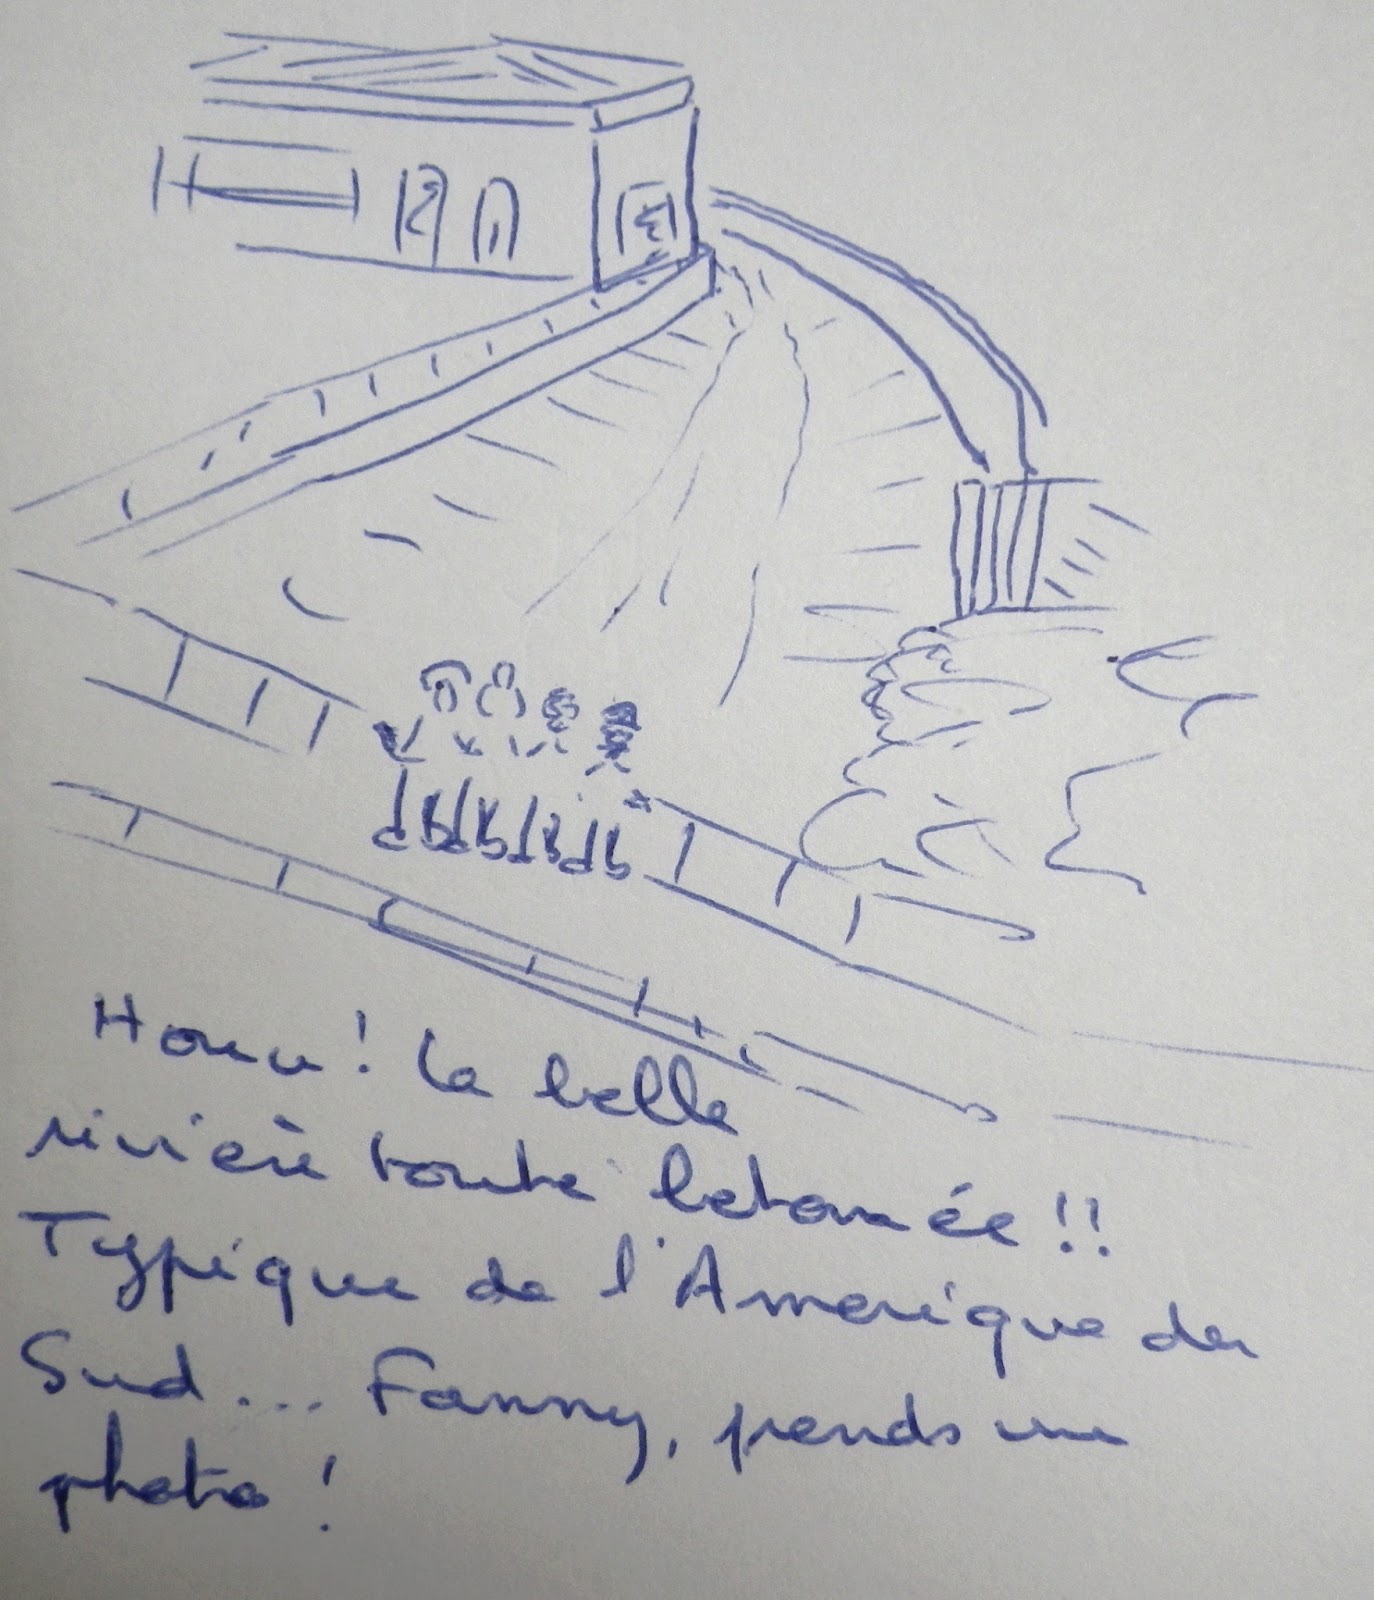 Houu ! La belle
rivière toute betonnée !!
Typique de l'Amerique du
Sud... Fanny, prends une
photo !